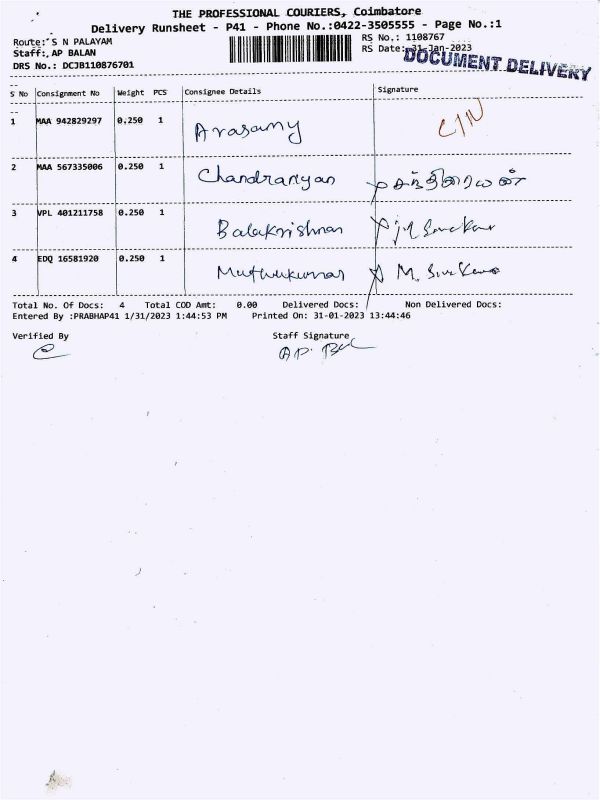 THE PROFESSIONAL COURIERS, Coimbatore
Delivery Runsheet - P41 - Phone No.:0422-3505555 - Page No.:1
Route: S N PALAYAM
RS No.: 1108767
Staff:, AP BALAN
RS Date: 31-Jan-2023
DRS No.: DCJB110876701
DOCUMENT DELIVERY
S No Consignment No Weight PCS Consignee Details Signature
1 MAA 942829297 0.250 1 Arasamy C/N
2 MAA 567335006 0.250 1 Chandranyan
3 VPL 401211758 0.250 1 Balakrishnan
4 EDQ 16581920 0.250 1 Muthukumar
Total No. Of Docs: 4 Total COD Amt: 0.00 Delivered Docs: Non Delivered Docs:
Entered By :PRABHAP41 1/31/2023 1:44:53 PM Printed On: 31-01-2023 13:44:46
Verified By Staff Signature